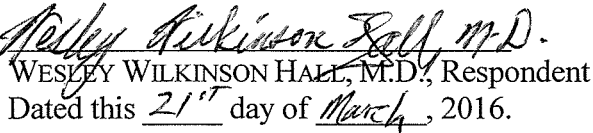 Wesley Wilkinson Hall, M.D.
WESLEY WILKINSON HALL, M.D., Respondent
Dated this 21ST day of March, 2016.